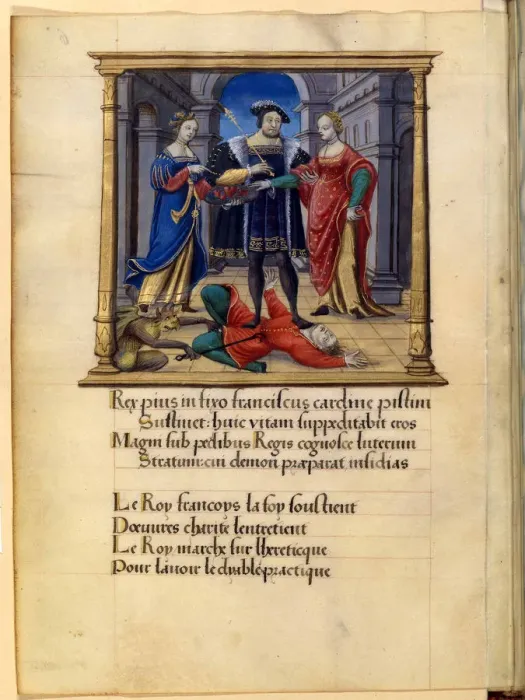 Rex pius in fixo franciscus cardine pistim
Sustinet: huic vitam suppeditabit eros
Magni sub pedibus Regis cognosce luterum
Stratum: cui demon præparat insidias
Le Roy francoys la foy soustient
Doeuvres charite lentretient
Le Roy marche sur lhereticque
Pour lavoir le dyable practique